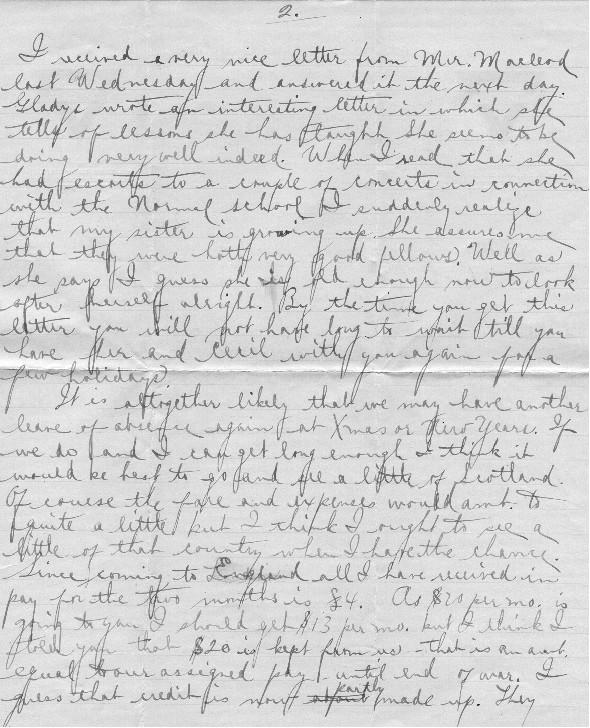 2.
I received a very nice letter from Mr. Macleod
last Wednesday and answered it the next day.
Gladys wrote an interesting letter in which she
tells of lessons she has taught. She seems to be
doing very well indeed. When I read that she
had escorts to a couple of concerts in connection
with the Normal school I suddenly realize
that my sister is growing up. She assures me
that they were both very good fellows. Well as
she says I guess she is old enough now to look
after herself alright. By the time you get this
letter you will not have long to wait till you
have her and Cecil with you again for a
few holidays.
It is altogether likely that we may have another
leave of absence again at Xmas or New Years. If
we do and I can get long enough I think it
would be best to go and see a little of Scotland.
Of course the fare and expenses would amt. to
quite a little but I think I ought to see a
little of that country when I have the chance.
Since coming to England all I have received in
pay for the two months is £4. As $20 per mo. is
going to you I should get $13 per mo. but I think I
told you that $20 is kept from us - that is an amt.
equal to our assigned pay - until end of war. I
guess that credit is now partly made up. They